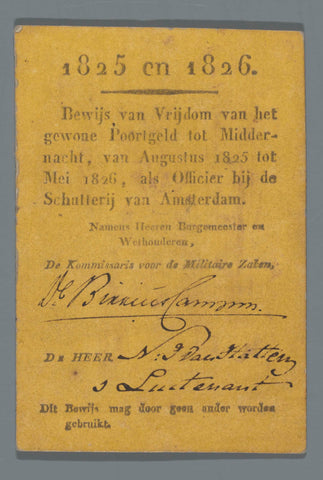 1825 en 1826.
Bewijs van Vrijdom van het
gewone Poortgeld tot Midder-
nacht, van Augustus 1825 tot
Mei 1826, als Officier bij de
Schutterij van Amsterdam.
Namens Heeren Burgemeester en
Wethouderen,
De Kommissaris voor de Militaire Zaken,
DE HEER N:
s Luitenant
Dit Bewijs mag door geen ander worden
gebruikt.